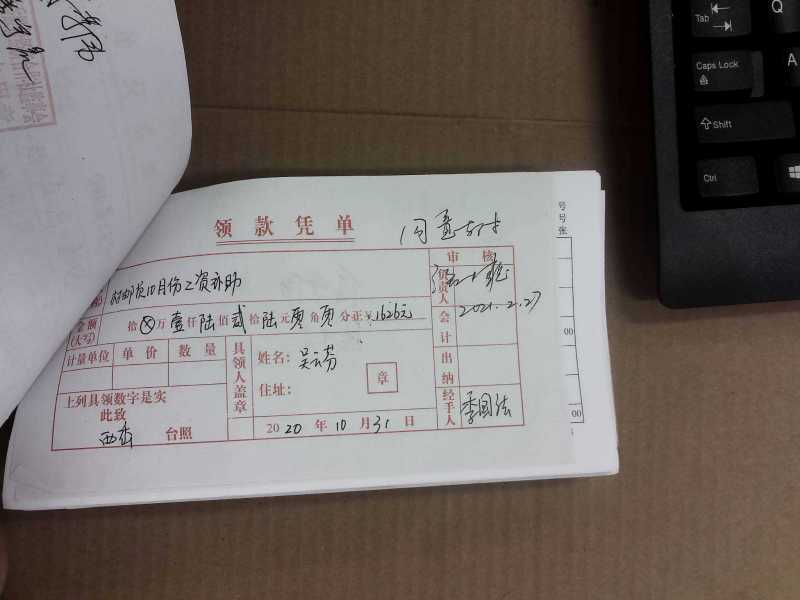 领款凭单
同意支付
审核
村邮员10月份工资补助
负责人
2021.2.27
金额(大写)
拾⊗万壹仟陆佰贰拾陆元零角零分正¥1626元
会计
计量单位 单价 数量
具领人盖章
姓名：吴云芬
章
出纳
住址：
上列具领数字是实
此致
台照
2020年10月31日
经手人
季国法
号
号
张
00
00
Tab
Q
Caps Lock
A
Shift
Ctrl